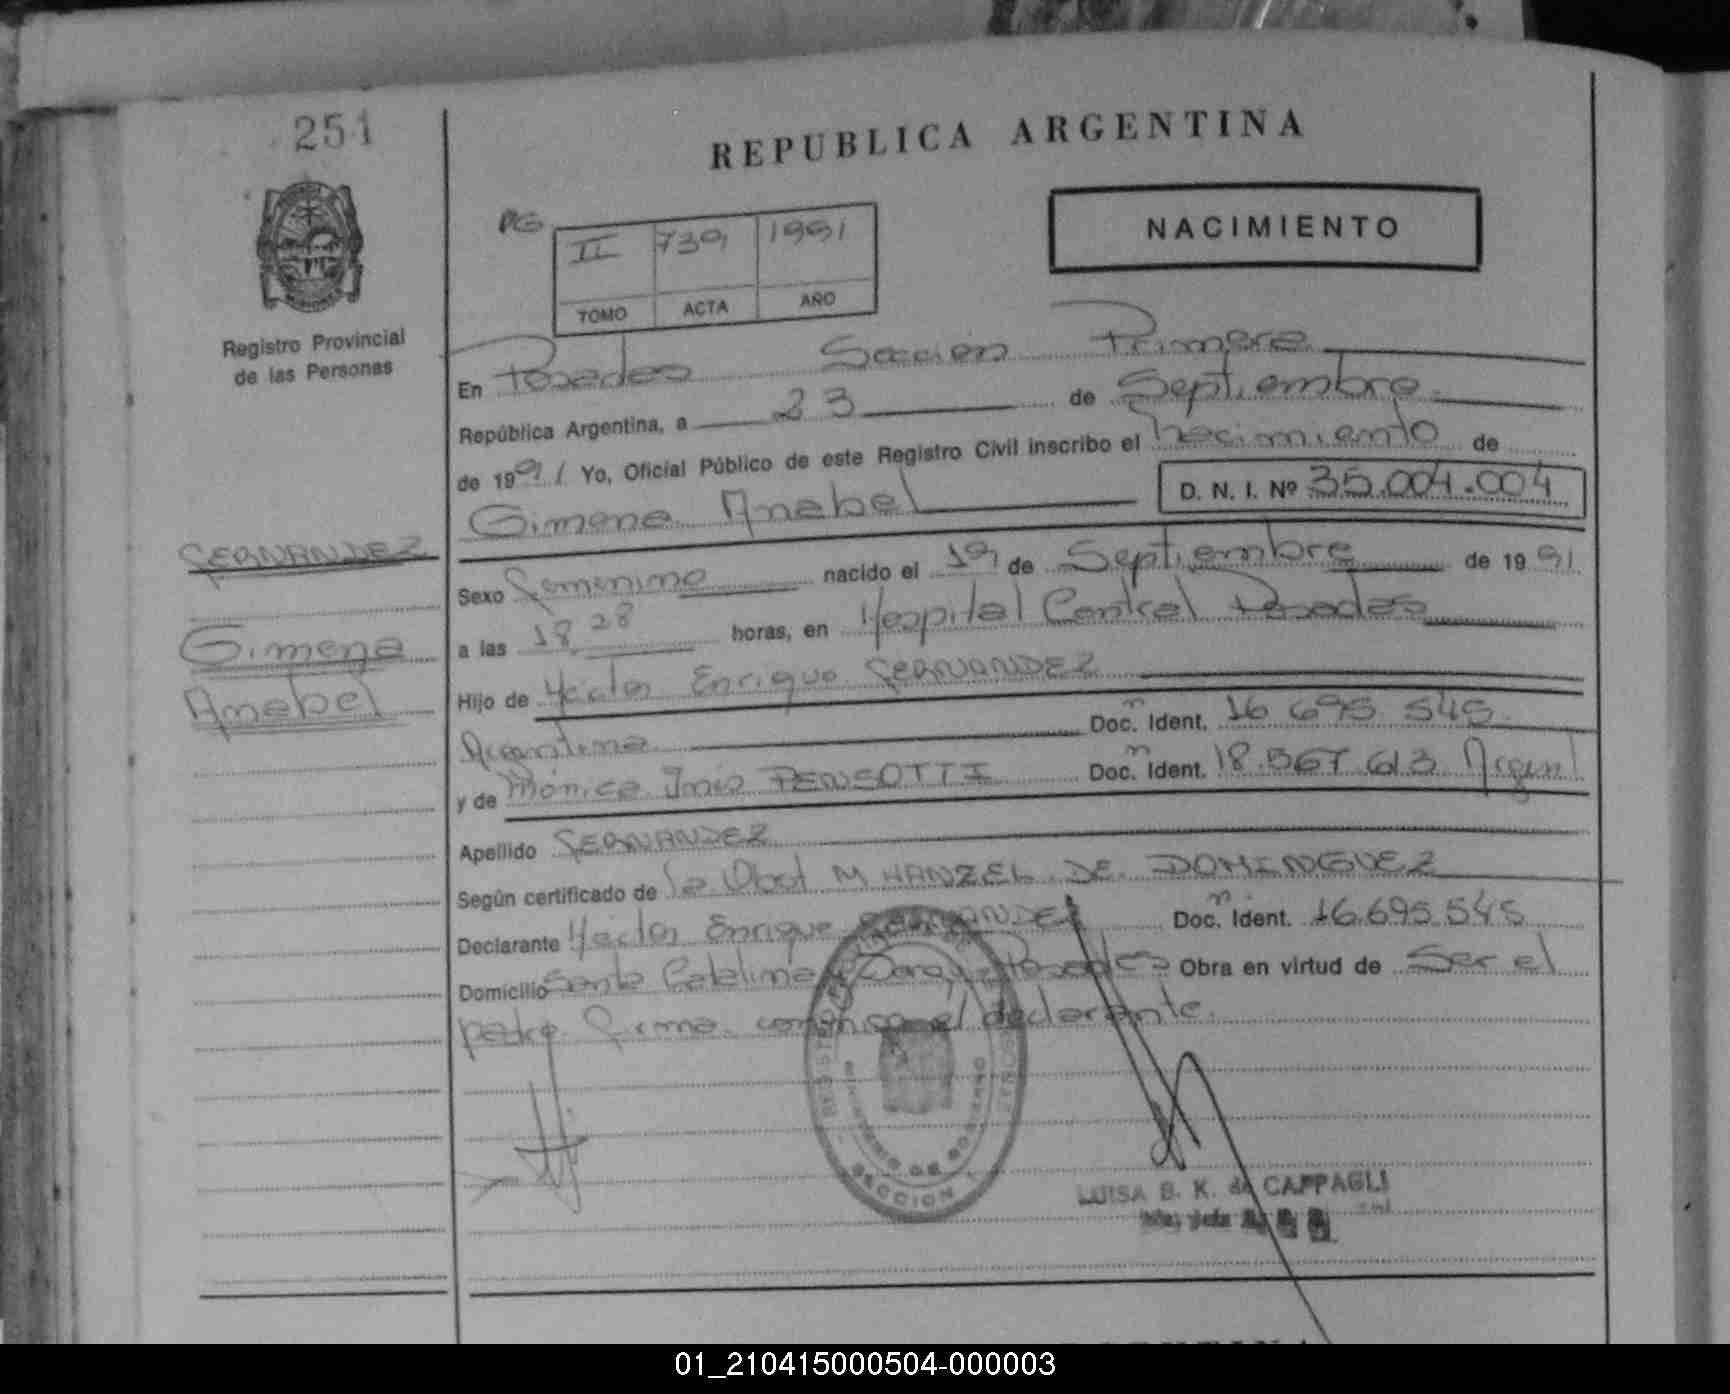 251
REPUBLICA ARGENTINA
NACIMIENTO
PG
II 739 1991
TOMO ACTA AÑO
Registro Provincial
de las Personas
En Posadas Seccion Primera
República Argentina, a 23 de Septiembre
de 1991 Yo, Oficial Público de este Registro Civil inscribo el nacimiento de
Gimena Anabel D. N. I. Nº 35.004.004
FERNANDEZ
Gimena
Anabel
Sexo femenino nacido el 19 de Septiembre de 1991
a las 18 28 horas, en Hospital Central Posadas
Hijo de Héctor Enrique FERNANDEZ
Argentino Doc. Ident. 16 695 545
y de Mónica Inés PENSOTTI Doc. Ident. 18.567.613 Argent
Apellido FERNANDEZ
Según certificado de la Obst M HANZEL DE DOMINGUEZ
Declarante Héctor Enrique FERNANDEZ Doc. Ident. 16.695.545
Domicilio Santa Catalina y Posadas Obra en virtud de Ser el
padre firma conmigo el declarante.
SECCION 1
LUISA B. K. de CAPPAGLI
01_210415000504-000003